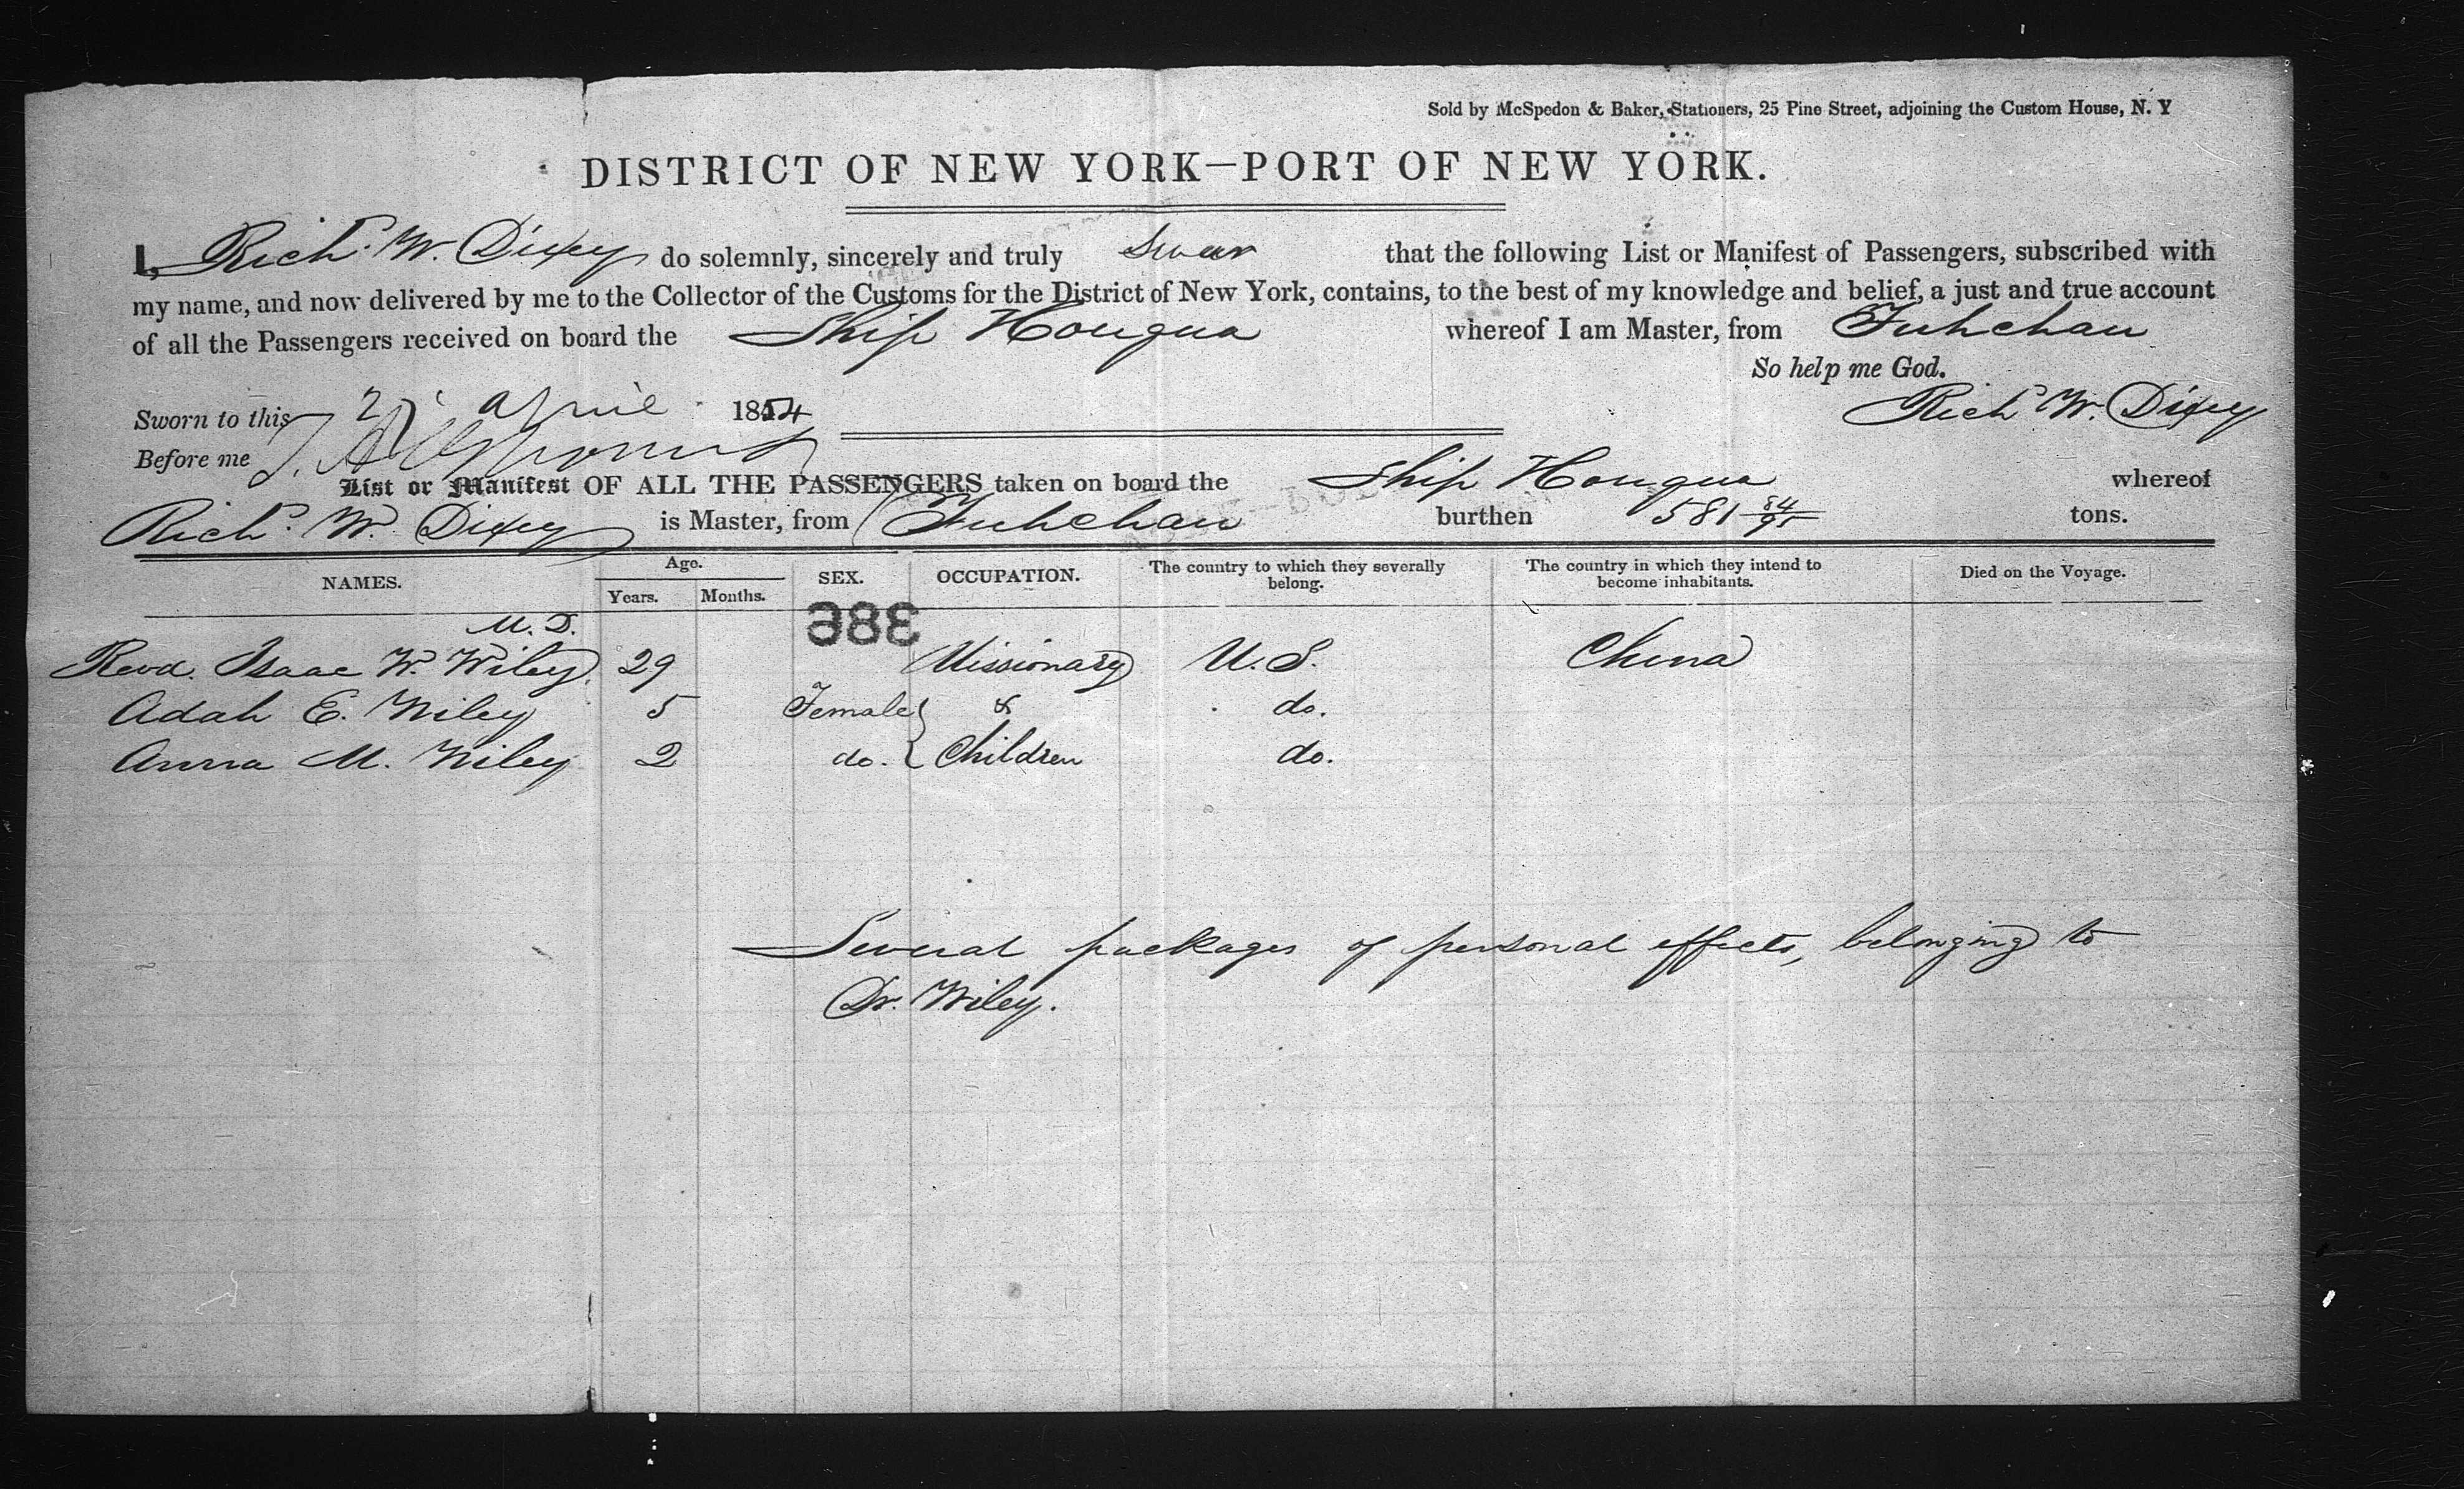 Sold by McSpedon & Baker, Stationers, 25 Pine Street, adjoining the Custom House, N. Y
DISTRICT OF NEW YORK—PORT OF NEW YORK.
I, Richd. W. Dixey do solemnly, sincerely and truly swear that the following List or Manifest of Passengers, subscribed with
my name, and now delivered by me to the Collector of the Customs for the District of New York, contains, to the best of my knowledge and belief, a just and true account
of all the Passengers received on board the Ship Houqua whereof I am Master, from Fuhchau
So help me God.
Sworn to this April 1854 Richd W. Dixey
Before me
List or Manifest OF ALL THE PASSENGERS taken on board the Ship Houqua whereof
Richd. W. Dixey is Master, from Fuhchau burthen 581 84/95 tons.
NAMES. Age. Years. Months. SEX. OCCUPATION. The country to which they severally belong. The country in which they intend to become inhabitants. Died on the Voyage.
386
M. D.
Revd. Isaac W. Wiley, 29 Missionary U. S. China
Adah E. Wiley 5 Female & do.
Anna M. Wiley 2 do. Children do.
Several packages of personal effects, belonging to
Dr. Wiley.